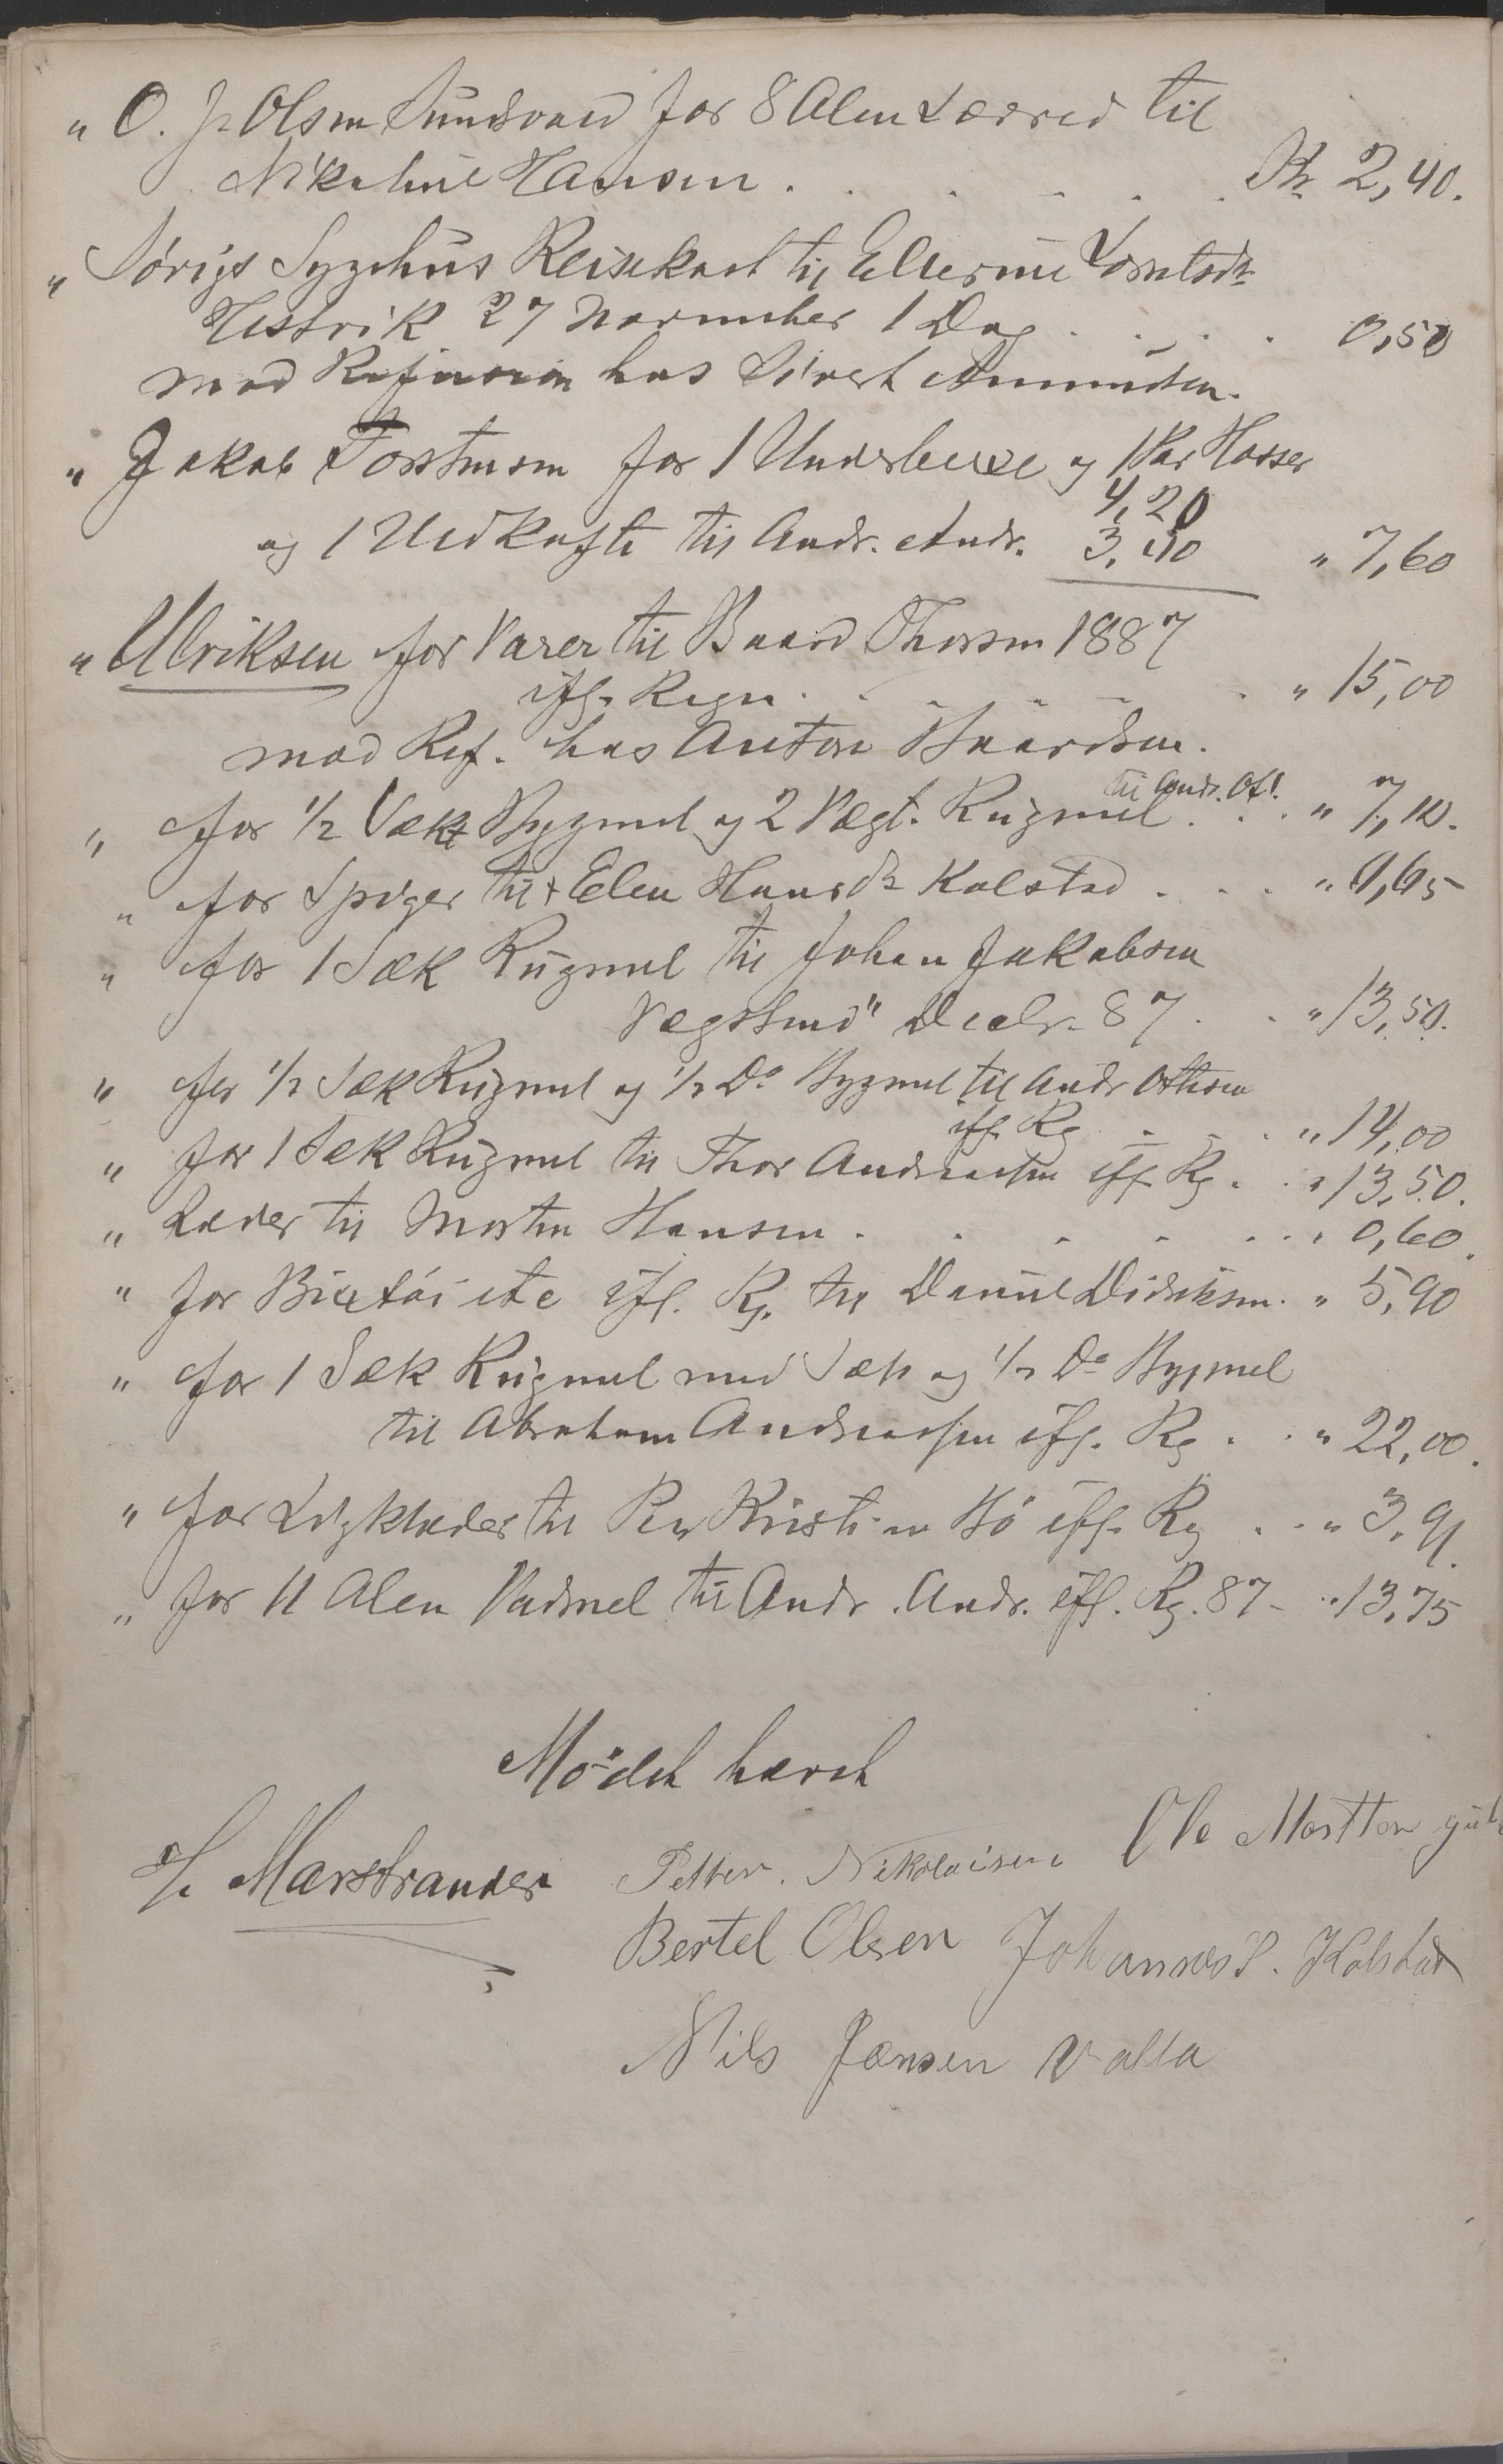 " O. J. Olsen Sundsvold for 8 Alen Lærred til
Nikoline Hansen . . . . . . Kr 2,40.
" Sørigs Sygehus Reisekost til Ellerine
27 November 1 Dag . . . . 0,50
mod Refusion hos Sivert Amundsen.
" Jakob Torstensen for 1 Underbuxe og 1 Par Hosser
4,20
og 1 Uldkufte til Andr. Andr. 3,40 " 7,60
" Ulriksen for Varer til Baard Thorsen 1887
iflg. Regn. . . . . . " 15,00
mod Ref. hos Anton Baardsen.
til Andr. Ott.
" for 1/2 Sæk Bygmel og 2 Vægt. Rugmel . . . " 7,10.
" for Spiger til Elen Hansdr Kolstad . . . " 0,65
" for 1 Sæk Rugmel til Johan Jakobsen
Vægstund" Decbr. 87 . . " 13,50.
" for 1/2 Sæk Rugmel og 1/2 Do Bygmel til Andr Ottesen
ifl. Rg . . . " 14,00
" for 1 Sæk Rugmel til Thor Andreassen ifl. Rg. . " 13,50.
" Læder til Morten Hansen . . . . . . " 0,60.
" for Buxtøi etc ifl. Rg. til Daniel Didriksen. " 5,90
" for 1 Sæk Rugmel med Sæk og 1/2 Do Bygmel
til Abraham Andreassen ifl. Rg . . " 22,00.
" for Ligklæder til Kristi ifl. Rg . . " 3,91.
" for 11 Alen Vadmel til Andr. Andr. ifl. Rg. 87 - " 13,75
Mödet hævet
Marstrander Petter. Nikolaisen Ole Mortten
Bertel Olsen Johannes P. Kolstad
Nils Jænsen Valla